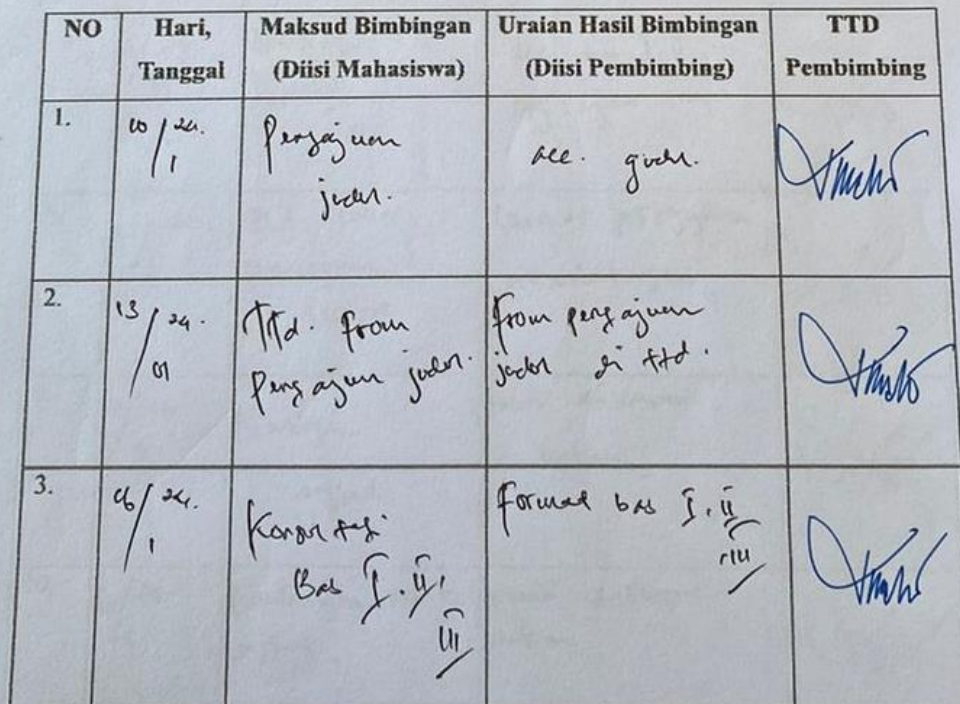 NO Hari, Tanggal Maksud Bimbingan (Diisi Mahasiswa) Uraian Hasil Bimbingan (Diisi Pembimbing) TTD Pembimbing
1. 10/24. 1
Pengajuan
judul.
acc. judul.
2. 13/24. 01
Ttd. from
pengajuan judul.
from pengajuan
judul di ttd.
3. /24. 1
Konsultasi
Bab I. II,
III
Format bab I. II
III